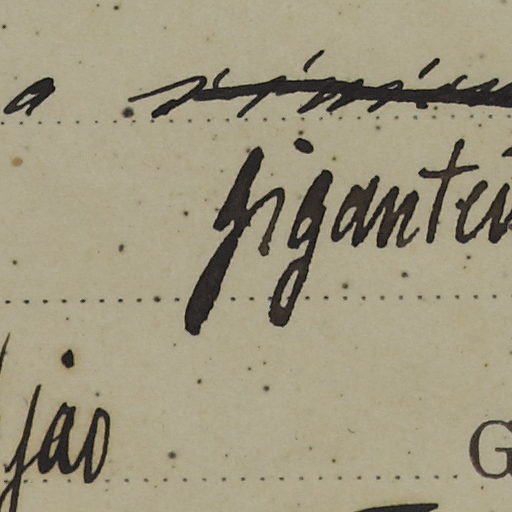 a
gigantei
jao G